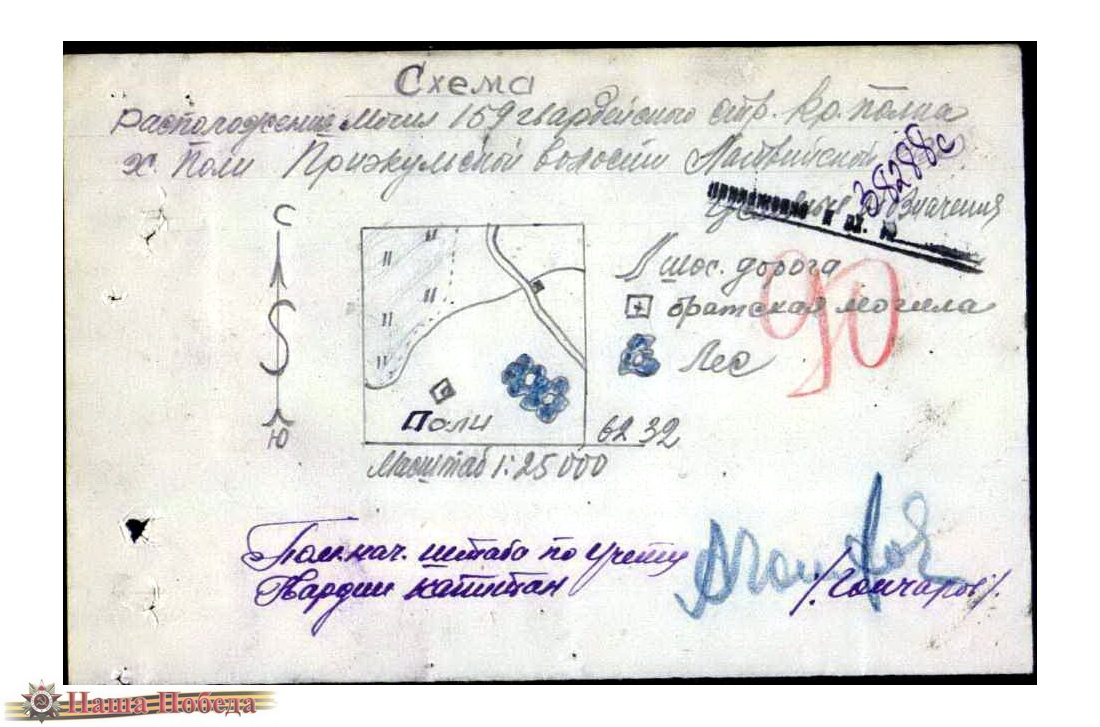 Схема
Расположение могил 159 гвардейского стр. кр. полка
х. Поли Приэкульской волости Латвийской
38288с
приложение к вх. №
Условные обозначения
С
шос. дорога
братская могила
90
Лес
Поли
Ю
62 32
Масштаб 1:25000
Пом. нач. штаба по учету
Гвардии капитан /Гончаров/.
Наша Победа